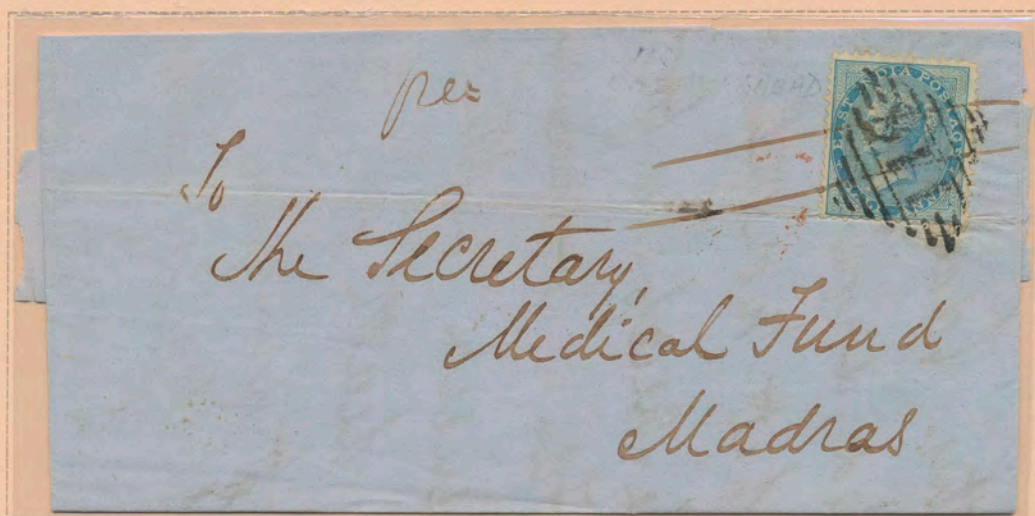 per
To
The Secretary,
Medical Fund
Madras
EAST INDIA POSTAGE